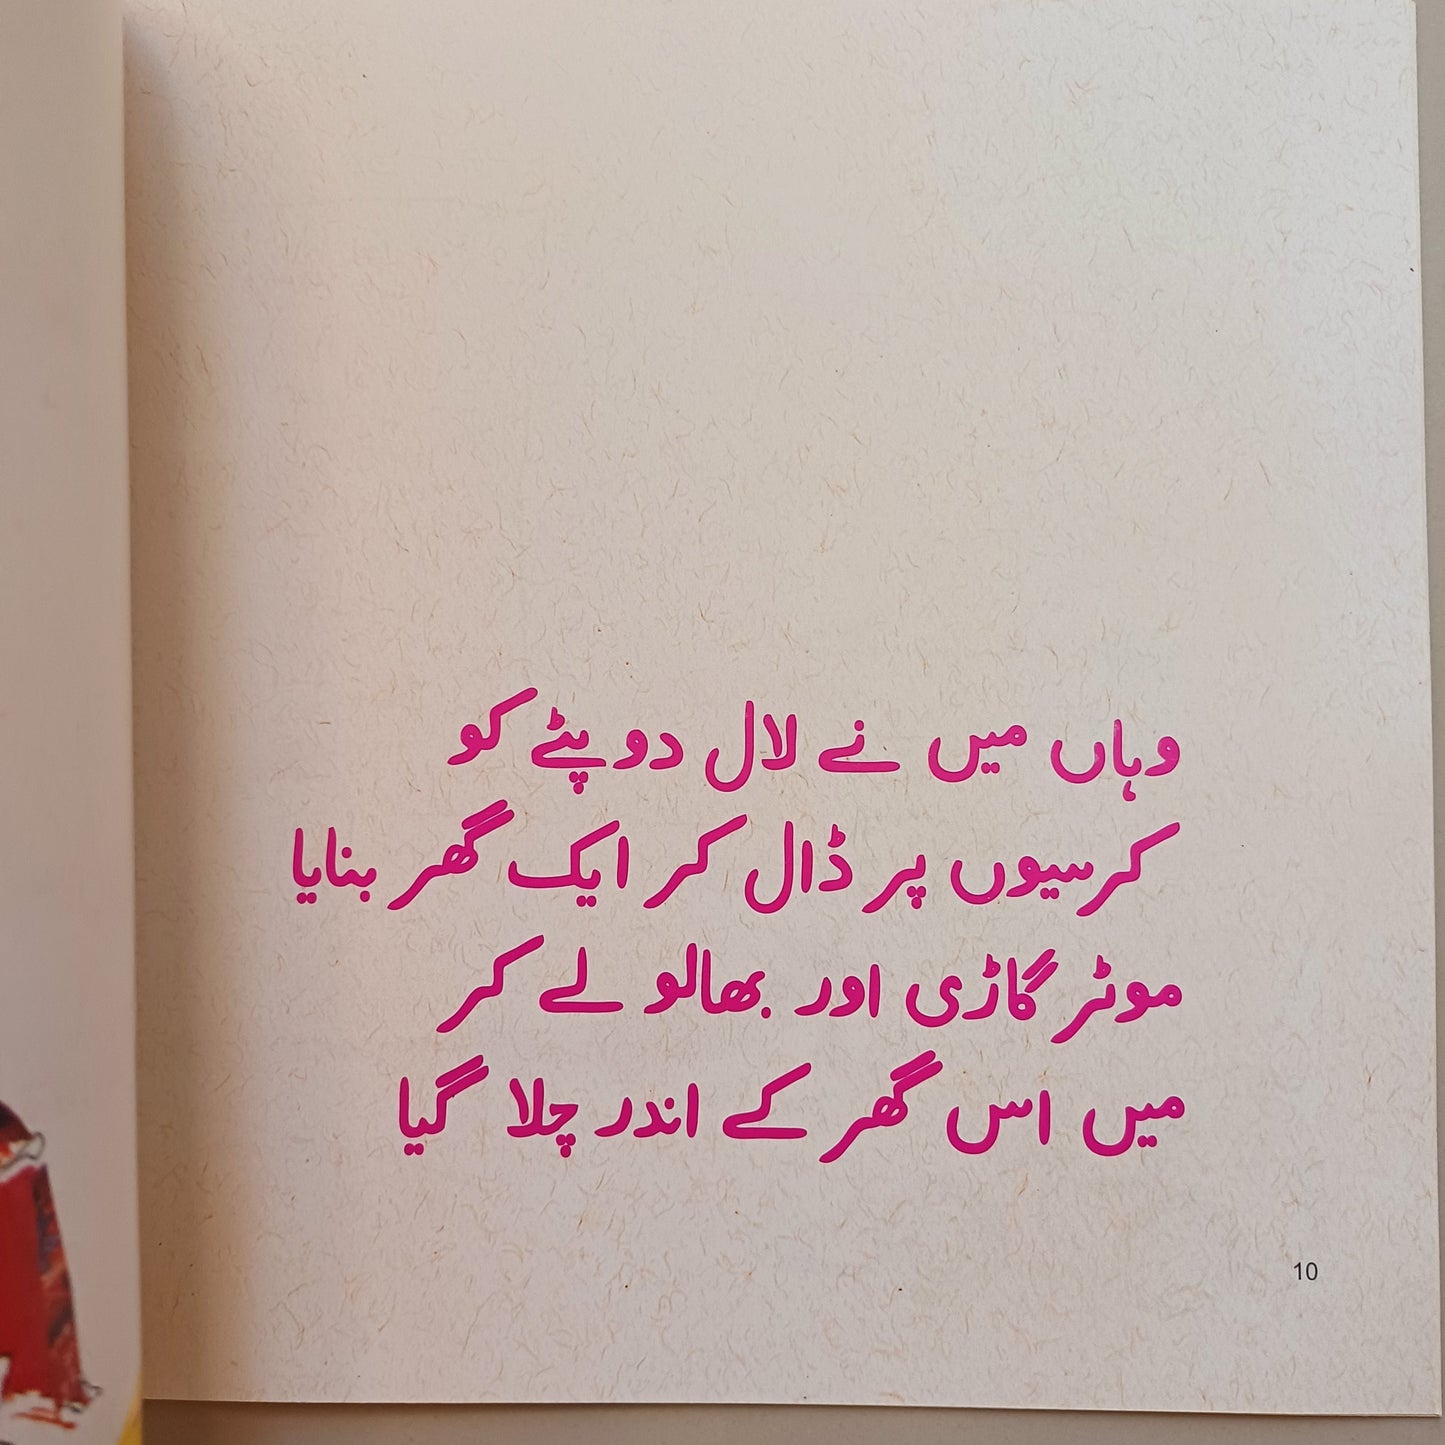 وہاں میں نے لال دوپٹے کو
کرسیوں پر ڈال کر ایک گھر بنایا
موٹر گاڑی اور بھالو لے کر
میں اس گھر کے اندر چلا گیا
10